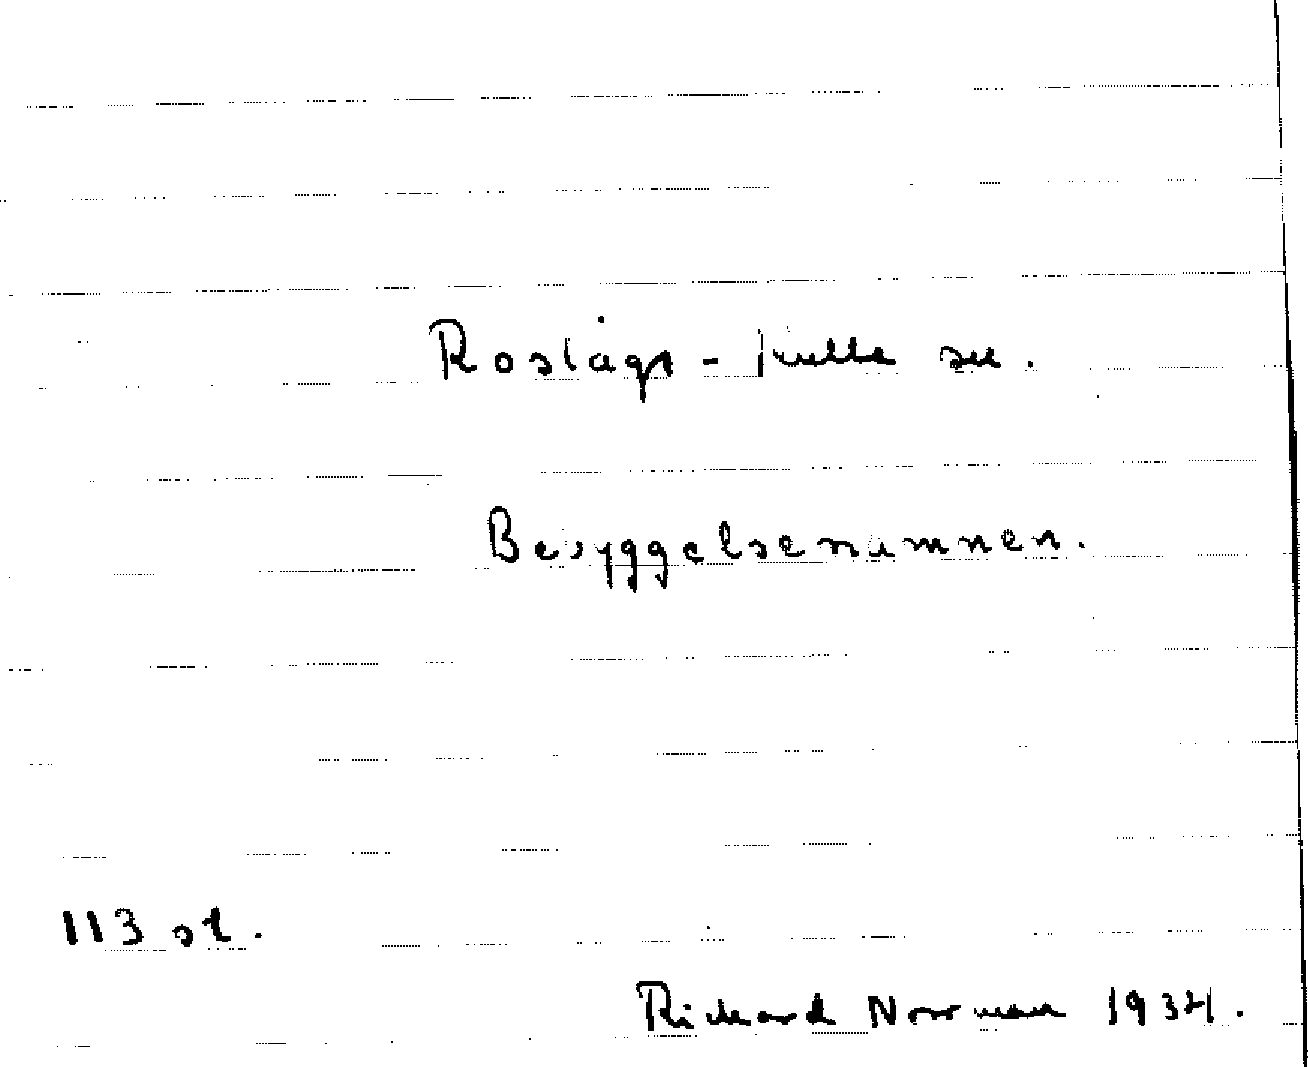 Roslags-Kulla sn.
Bebyggelsenamnen.
113 st.
Rickard Norrman 1934.